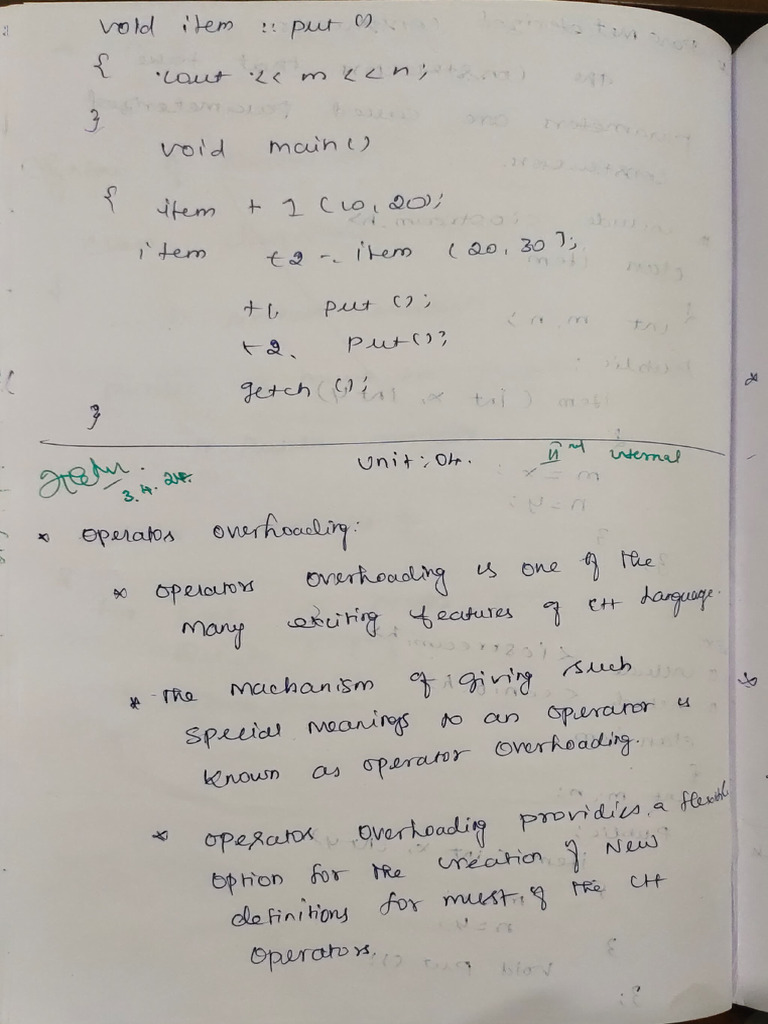 void item :: put ()
{ cout << m << n;
}
void main()
{ item t 1 (10, 20);
item t2 = item (20, 30);
t1. put ();
t2. put();
getch ();
}
Unit: 04. IInd internal
3.4.24.
* operator overhoading:
* operators overhoading is one of the
many exciting features of C++ Language.
* The machanism of giving such
special meanings to an operator is
known as operator overhoading.
* operator overhoading providies a flexible
option for the creation of New
definitions for must of the C++
operators.